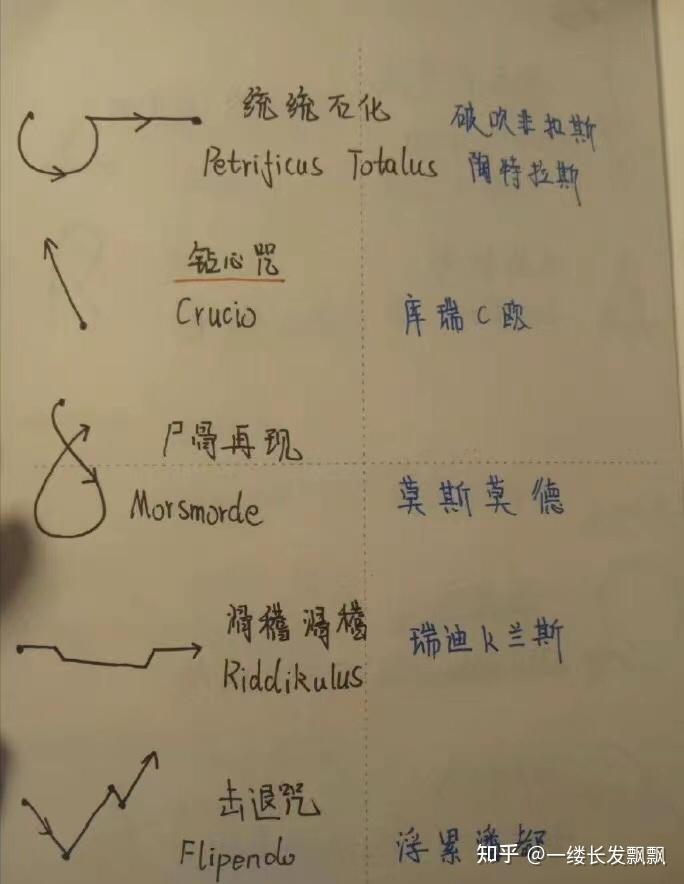 统统石化
Petrificus Totalus
破吹非拉斯
陶特拉斯
钻心咒
Crucio
库瑞C欧
尸骨再现
Morsmorde
莫斯莫德
滑稽滑稽
Riddikulus
瑞迪k兰斯
击退咒
Flipendo
浮累潘
知乎 @一缕长发飘飘